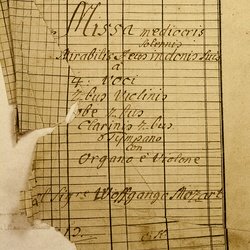 Missa mediocris
Solennis
Mirabilis Deus in donis suis
a
4: Voci
2.bus Violinis
2.bus
Clarinis 2.bus
Tympano
con
Organo è Violone
Del Sigre Wolfgango Mozart